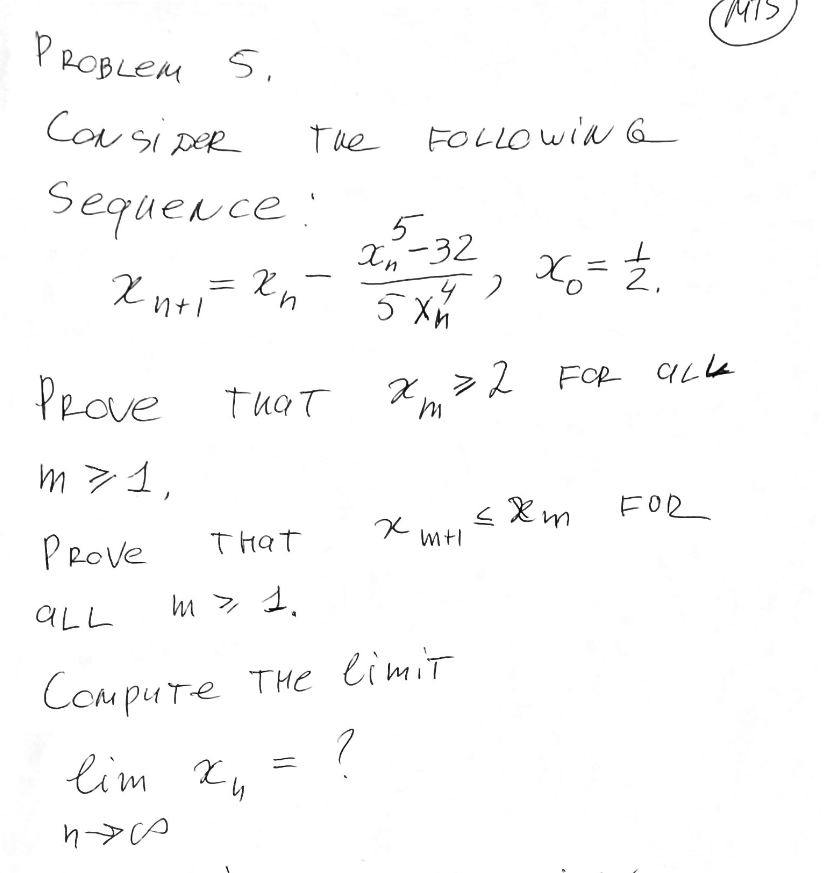 M15
Problem 5.
Consider the following
sequence:
x_{n+1} = x_n - \frac{x_n^5 - 32}{5 x_n^4}, x_0 = \frac{1}{2}.
Prove that x_m ⩾ 2 for all
m ⩾ 1,
Prove that x_{m+1} ≤ x_m for
all m ⩾ 1.
Compute the limit
lim x_n = ?
n→∞